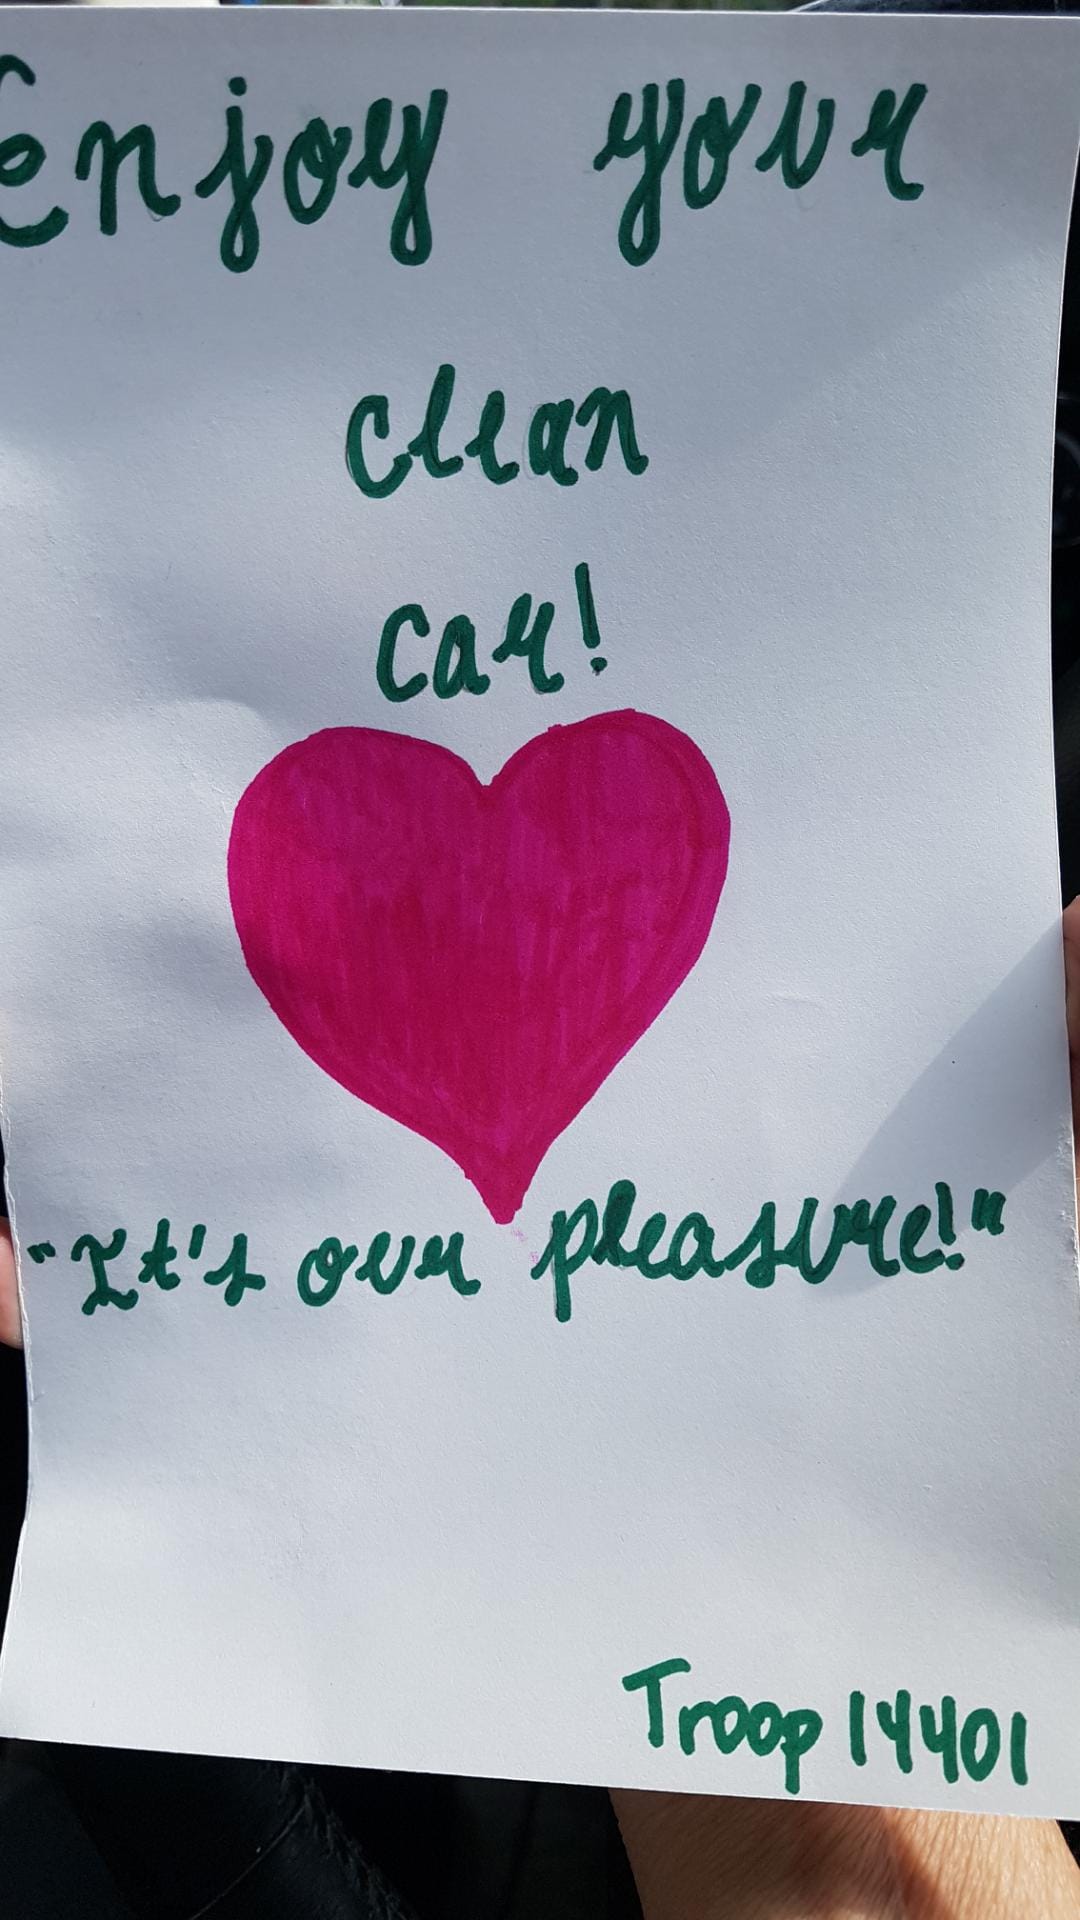 Enjoy your
clean
car!
"It's our pleasure!"
Troop 14401